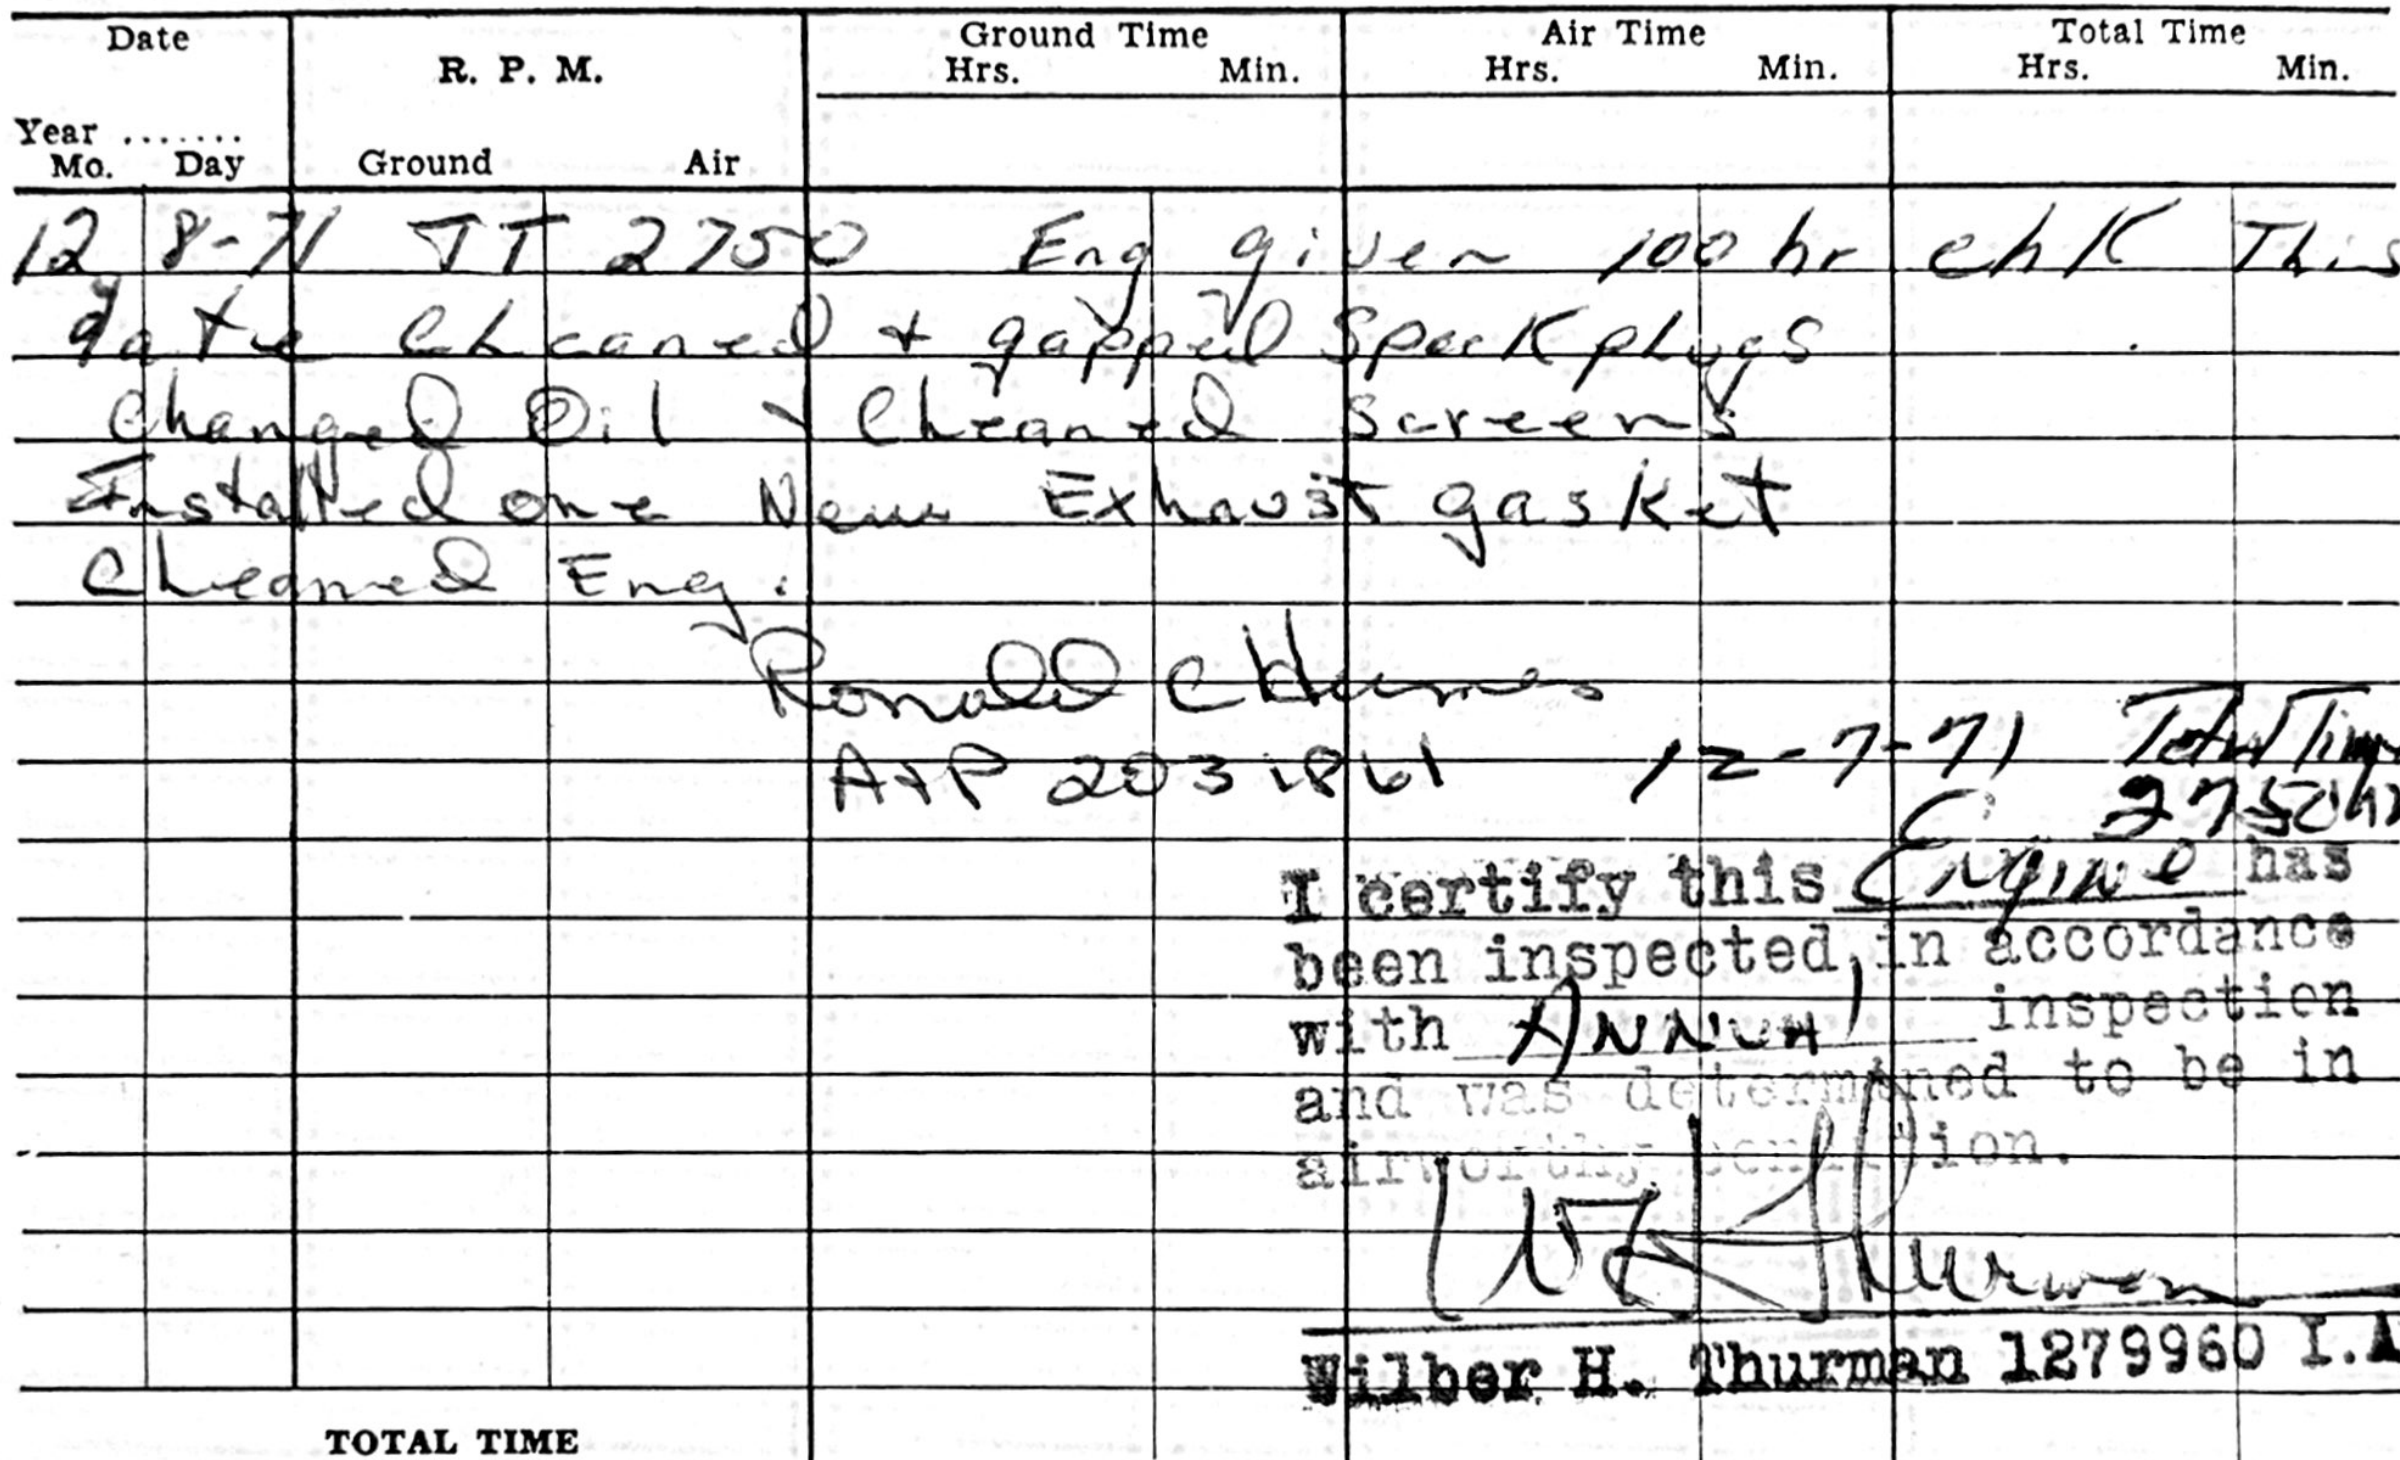 Date R. P. M. Ground Time Air Time Total Time
Hrs. Min. Hrs. Min. Hrs. Min.
Year .......
Mo. Day Ground Air
12 8-71 TT 2750 Eng given 100 hr chK This
date Cleaned + gapped Spark plugs
Changed Oil + Cleaned Screens
Installed one New Exhaust gasket
Cleaned Eng.
Ronald C
A+P 2031861 12-7-71 Total Time
2750 hr
I certify this Engine has
been inspected in accordance
with Annual inspection
and was determined to be in
airworthy condition.
W H Thurman
Wilber H. Thurman 1279960 I.A
TOTAL TIME